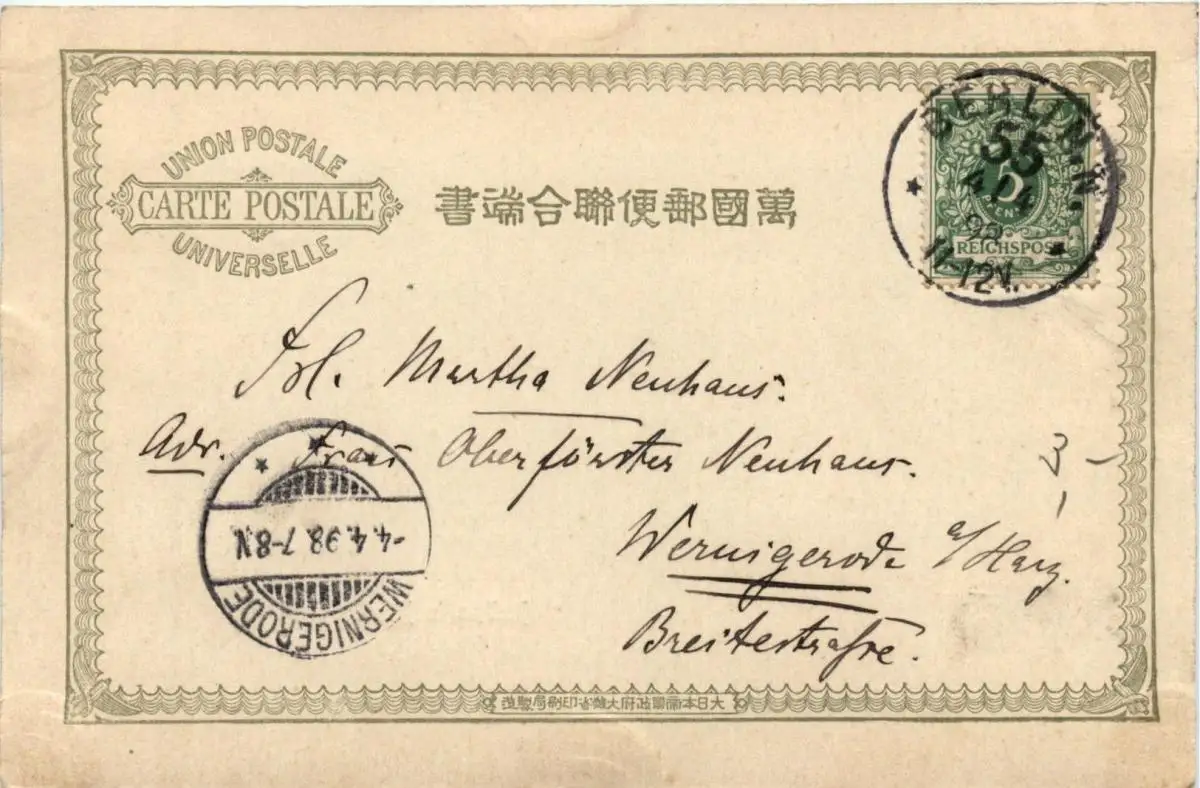 UNION POSTALE
CARTE POSTALE
UNIVERSELLE
萬國郵便聯合端書
BERLIN N.
55
4/4
98
11-12V.
5
REICHSPOST
Frl. Martha Neuhaus.
Adr. Frau Oberförster Neuhaus.
Wernigerode a/Harz.
Breitestraße.
-4.4.98.7-8N.
WERNIGERODE
大日本帝國政府大藏省印刷局製造